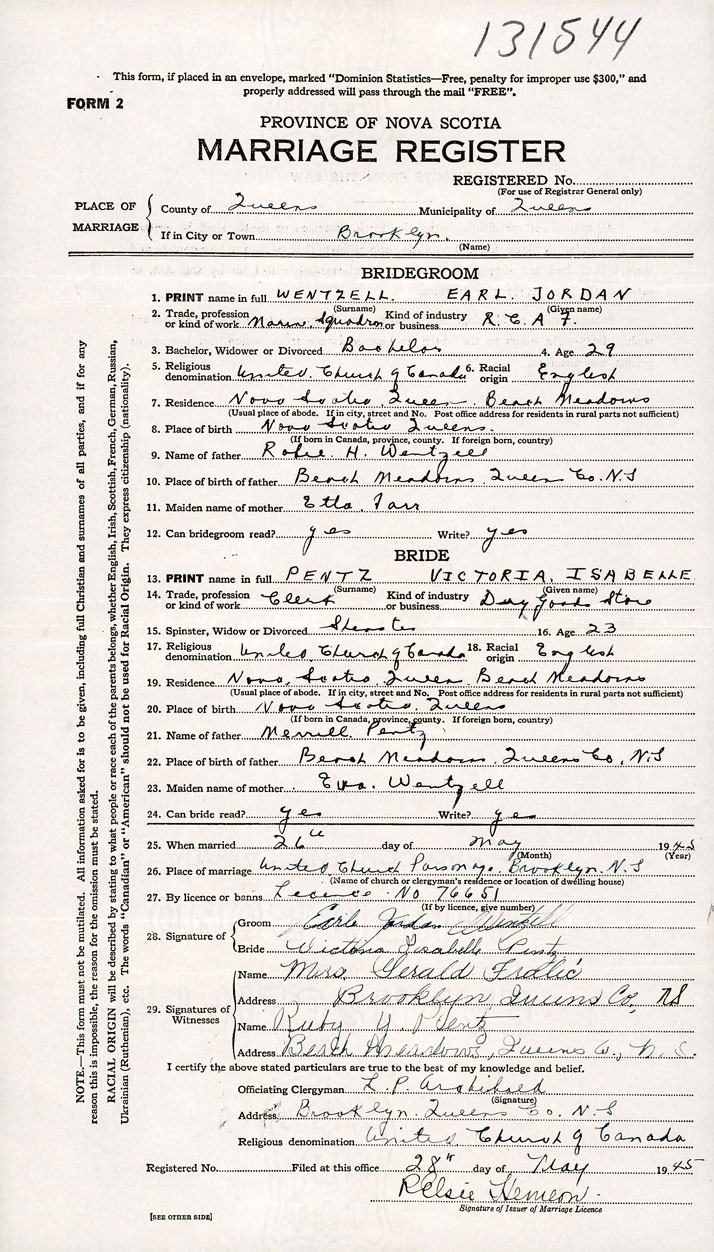 131544
This form, if placed in an envelope, marked “Dominion Statistics—Free, penalty for improper use $300,” and
properly addressed will pass through the mail “FREE”.
FORM 2
PROVINCE OF NOVA SCOTIA
MARRIAGE REGISTER
REGISTERED No.
(For use of Registrar General only)
PLACE OF MARRIAGE
County of Queens Municipality of Queens
If in City or Town Brooklyn.
(Name)
BRIDEGROOM
1. PRINT name in full WENTZELL. EARL. JORDAN
(Surname) (Given name)
2. Trade, profession or kind of work Marine Squadron Kind of industry or business R.C.A.F.
3. Bachelor, Widower or Divorced Bachelor 4. Age 29
5. Religious denomination United Church of Canada 6. Racial origin English
7. Residence Nova Scotia Queens Beach Meadows
(Usual place of abode. If in city, street and No. Post office address for residents in rural parts not sufficient)
8. Place of birth Nova Scotia Queens.
(If born in Canada, province, county. If foreign born, country)
9. Name of father Robie. H. Wentzell
10. Place of birth of father Beach Meadows Queens Co. N.S
11. Maiden name of mother Etta. Tarr
12. Can bridegroom read? yes Write? yes
BRIDE
13. PRINT name in full PENTZ VICTORIA, ISABELLE
(Surname) (Given name)
14. Trade, profession or kind of work Clerk Kind of industry or business Dry Goods Store
15. Spinster, Widow or Divorced 16. Age 23
17. Religious denomination United Church of Canada 18. Racial origin English
19. Residence Nova Scotia Queens Beach Meadows
(Usual place of abode. If in city, street and No. Post office address for residents in rural parts not sufficient)
20. Place of birth Nova Scotia. Queens
(If born in Canada, province, county. If foreign born, country)
21. Name of father Merrill Pentz
22. Place of birth of father Beach Meadows, Queens Co, N.S
23. Maiden name of mother Eva. Wentzell
24. Can bride read? yes Write? yes
25. When married 26th day of May 1945
(Month) (Year)
26. Place of marriage United Church Parsonage Brooklyn. N.S
(Name of church or clergyman's residence or location of dwelling house)
27. By licence or banns Licence No 76651
(If by licence, give number)
28. Signature of
Groom Earle Jordan Wentzell
Bride Victoria Isabelle Pentz
29. Signatures of Witnesses
Name Mrs Gerald
Address Brooklyn Queens Co, NS
Name Ruby Y. Pentz
Address Beach Meadows, Queens Co., N.S.
I certify the above stated particulars are true to the best of my knowledge and belief.
Officiating Clergyman L. P. Archibald
(Signature)
Address Brooklyn. Queens Co. N.S
Religious denomination United Church of Canada
Registered No. Filed at this office 28" day of May 1945
Signature of Issuer of Marriage Licence
[SEE OTHER SIDE]
NOTE.—This form must not be mutilated. All information asked for is to be given, including full Christian and surnames of all parties, and if for any
reason this is impossible, the reason for the omission must be stated.
RACIAL ORIGIN will be described by stating to what people or race each of the parents belongs, whether English, Irish, Scottish, French, German, Russian,
Ukrainian (Ruthenian), etc. The words “Canadian” or “American” should not be used for Racial Origin. They express citizenship (nationality).